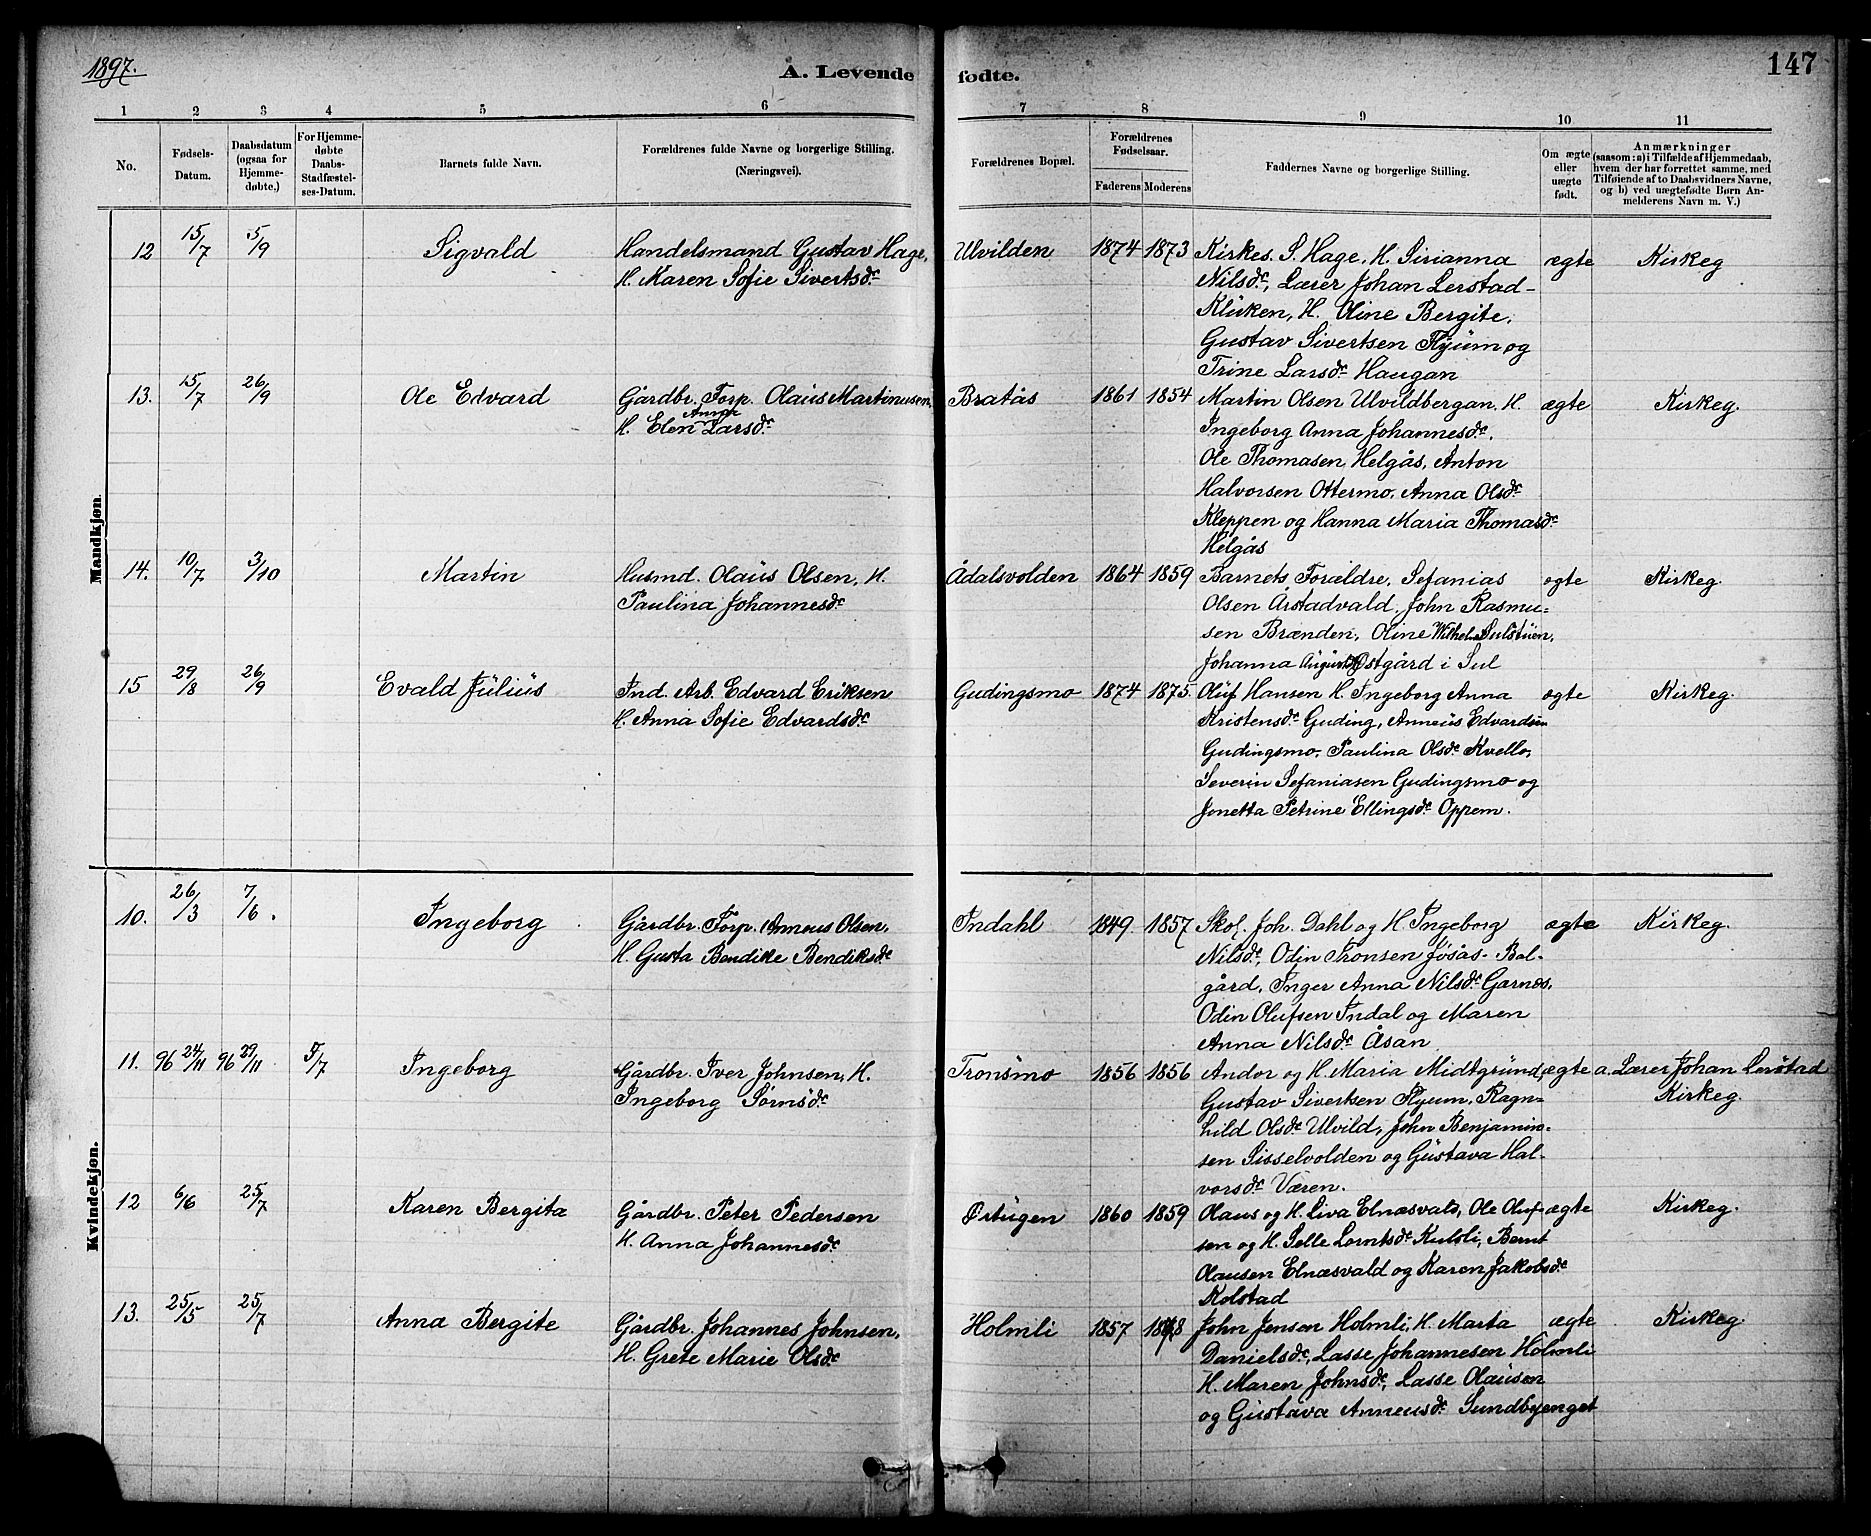 1897.
A. Levende fødte.
147
1 2 3 4 5 6 7 8 9 10 11
No.
Fødsels-
Datum.
Daabsdatum
(ogsaa for
Hjemme-
døbte.)
For Hjemme-
døbte
Daabs-
Stadfæstel-
ses-Datum.
Barnets fulde Navn.
Forældrenes fulde Navne og borgerlige Stilling.
(Næringsvei).
Forældrenes Bopæl.
Forældrenes
Fødselsaar.
Faderens Moderens
Faddernes Navne og borgerlige Stilling.
Om ægte
eller
uægte
født.
Anmærkninger
(saasom: a) i Tilfælde af Hjemmedaab,
hvem der har forrettet samme, med
Tilføiende af to Daabsvidners Navne,
og b) ved uægtefødte Børn An-
melderens Navn m. V.)
Mandkjøn.
12 15/7 5/9 Sigvald
Handelsmand Gustav Hage,
H. Karen Sofie Sivertsdr.
Ulvilden 1874 1873
Kirkes. S. Hage, H. Sirianna
Nilsdr., Lærer Johan Lerstad-
Klüken, H. Oline Bergite,
Gustav Sivertsen Flyüm og
Trine Larsdr. Haugan
ægte Kirkeg
13. 15/7 26/9 Ole Edvard
Gårdbr. Forp. Olaüs Martinusen,
H. Elen Anna Larsdr.
Bratås 1861 1854
Martin Olsen Ulvildbergan, H.
Ingeborg Anna Johannesdr.
Ole Thomasen Helgås, Anton
Halvorsen Ottermo, Anna Olsdr.
Kleppen og Hanna Maria Thomasdr.
Helgås
ægte Kirkeg.
14. 10/7 3/10 Martin
Husmd. Olaüs Olsen, H.
Paulina Johannesdr.
Ådalsvolden 1864 1859
Barnets Forældre, Sefanias
Olsen Årstadvald, John Rasmu-
sen Brænden, Oline Wilhelm. Sulstüen,
Johanna Augusta Østgård i Sul
ægte Kirkeg.
15 29/8 26/9 Evald Jülius
Ind. Arb. Edvard Eriksen
H. Anna Sofie Edvardsdr.
Gudingsmo 1874 1875
Olüf Hansen H. Ingeborg Anna
Kristensdr. Guding, Anneüs Edvardsen
Gudingsmo, Paulina Olsdr. Kvello,
Severin Sefaniasen Gudingsmo og
Jonetta Petrine Ellingsdr. Oppem.
ægte Kirkeg.
Kvindekjøn.
10. 26/3 7/6. Ingeborg
Gårdbr. Forp. Anneus Olsen,
H. Gusta Bendike Bendiksdr.
Indahl 1849 1857
Skol. Joh. Dahl og H. Ingeborg
Nilsdr., Odin Tronsen Jøsås-Bal-
gård, Inger Anna Nilsdr. Garnes,
Odin Olufsen Indal og Maren
Anna Nilsdr. Åsan
ægte Kirkeg.
11. 96 24/11 96 29/11 5/7 Ingeborg
Gårdbr. Iver Johnsen, H.
Ingeborg Sørnsdr.
Tronsmo 1856 1856
Andor og H. Maria Midtgründ,
Gustav Sivertsen Flyum, Ragn-
hild Olsdr. Ulvild, John Benjamin-
sen Sisselvolden og Güstava Hal-
vorsdr. Væren.
ægte a. Lærer Johan Lerstad
Kirkeg.
12 6/6 25/7 Karen Bergita
Gårdbr. Peter Pedersen
H. Anna Johannesdr.
Ørtugen 1860 1859
Olaus og H. Liva Elnæsvald, Ole Oluf-
sen og H. Selle Lorntsdr. Kulsli, Bernt
Olausen Elnæsvald og Karen Jakobsdr.
Kolstad
ægte Kirkeg.
13. 25/5 25/7 Anna Bergite
Gårdbr. Johannes Johnsen,
H. Grete Marie Olsdr.
Holmli 1857
John Jensen Holmli, H. Marta
Danielsdr., Lasse Johannesen Holmli
H. Maren Johnsdr., Lasse Olaüsen
og Güstava Anneusdr. Sundbyenget
ægte Kirkeg.